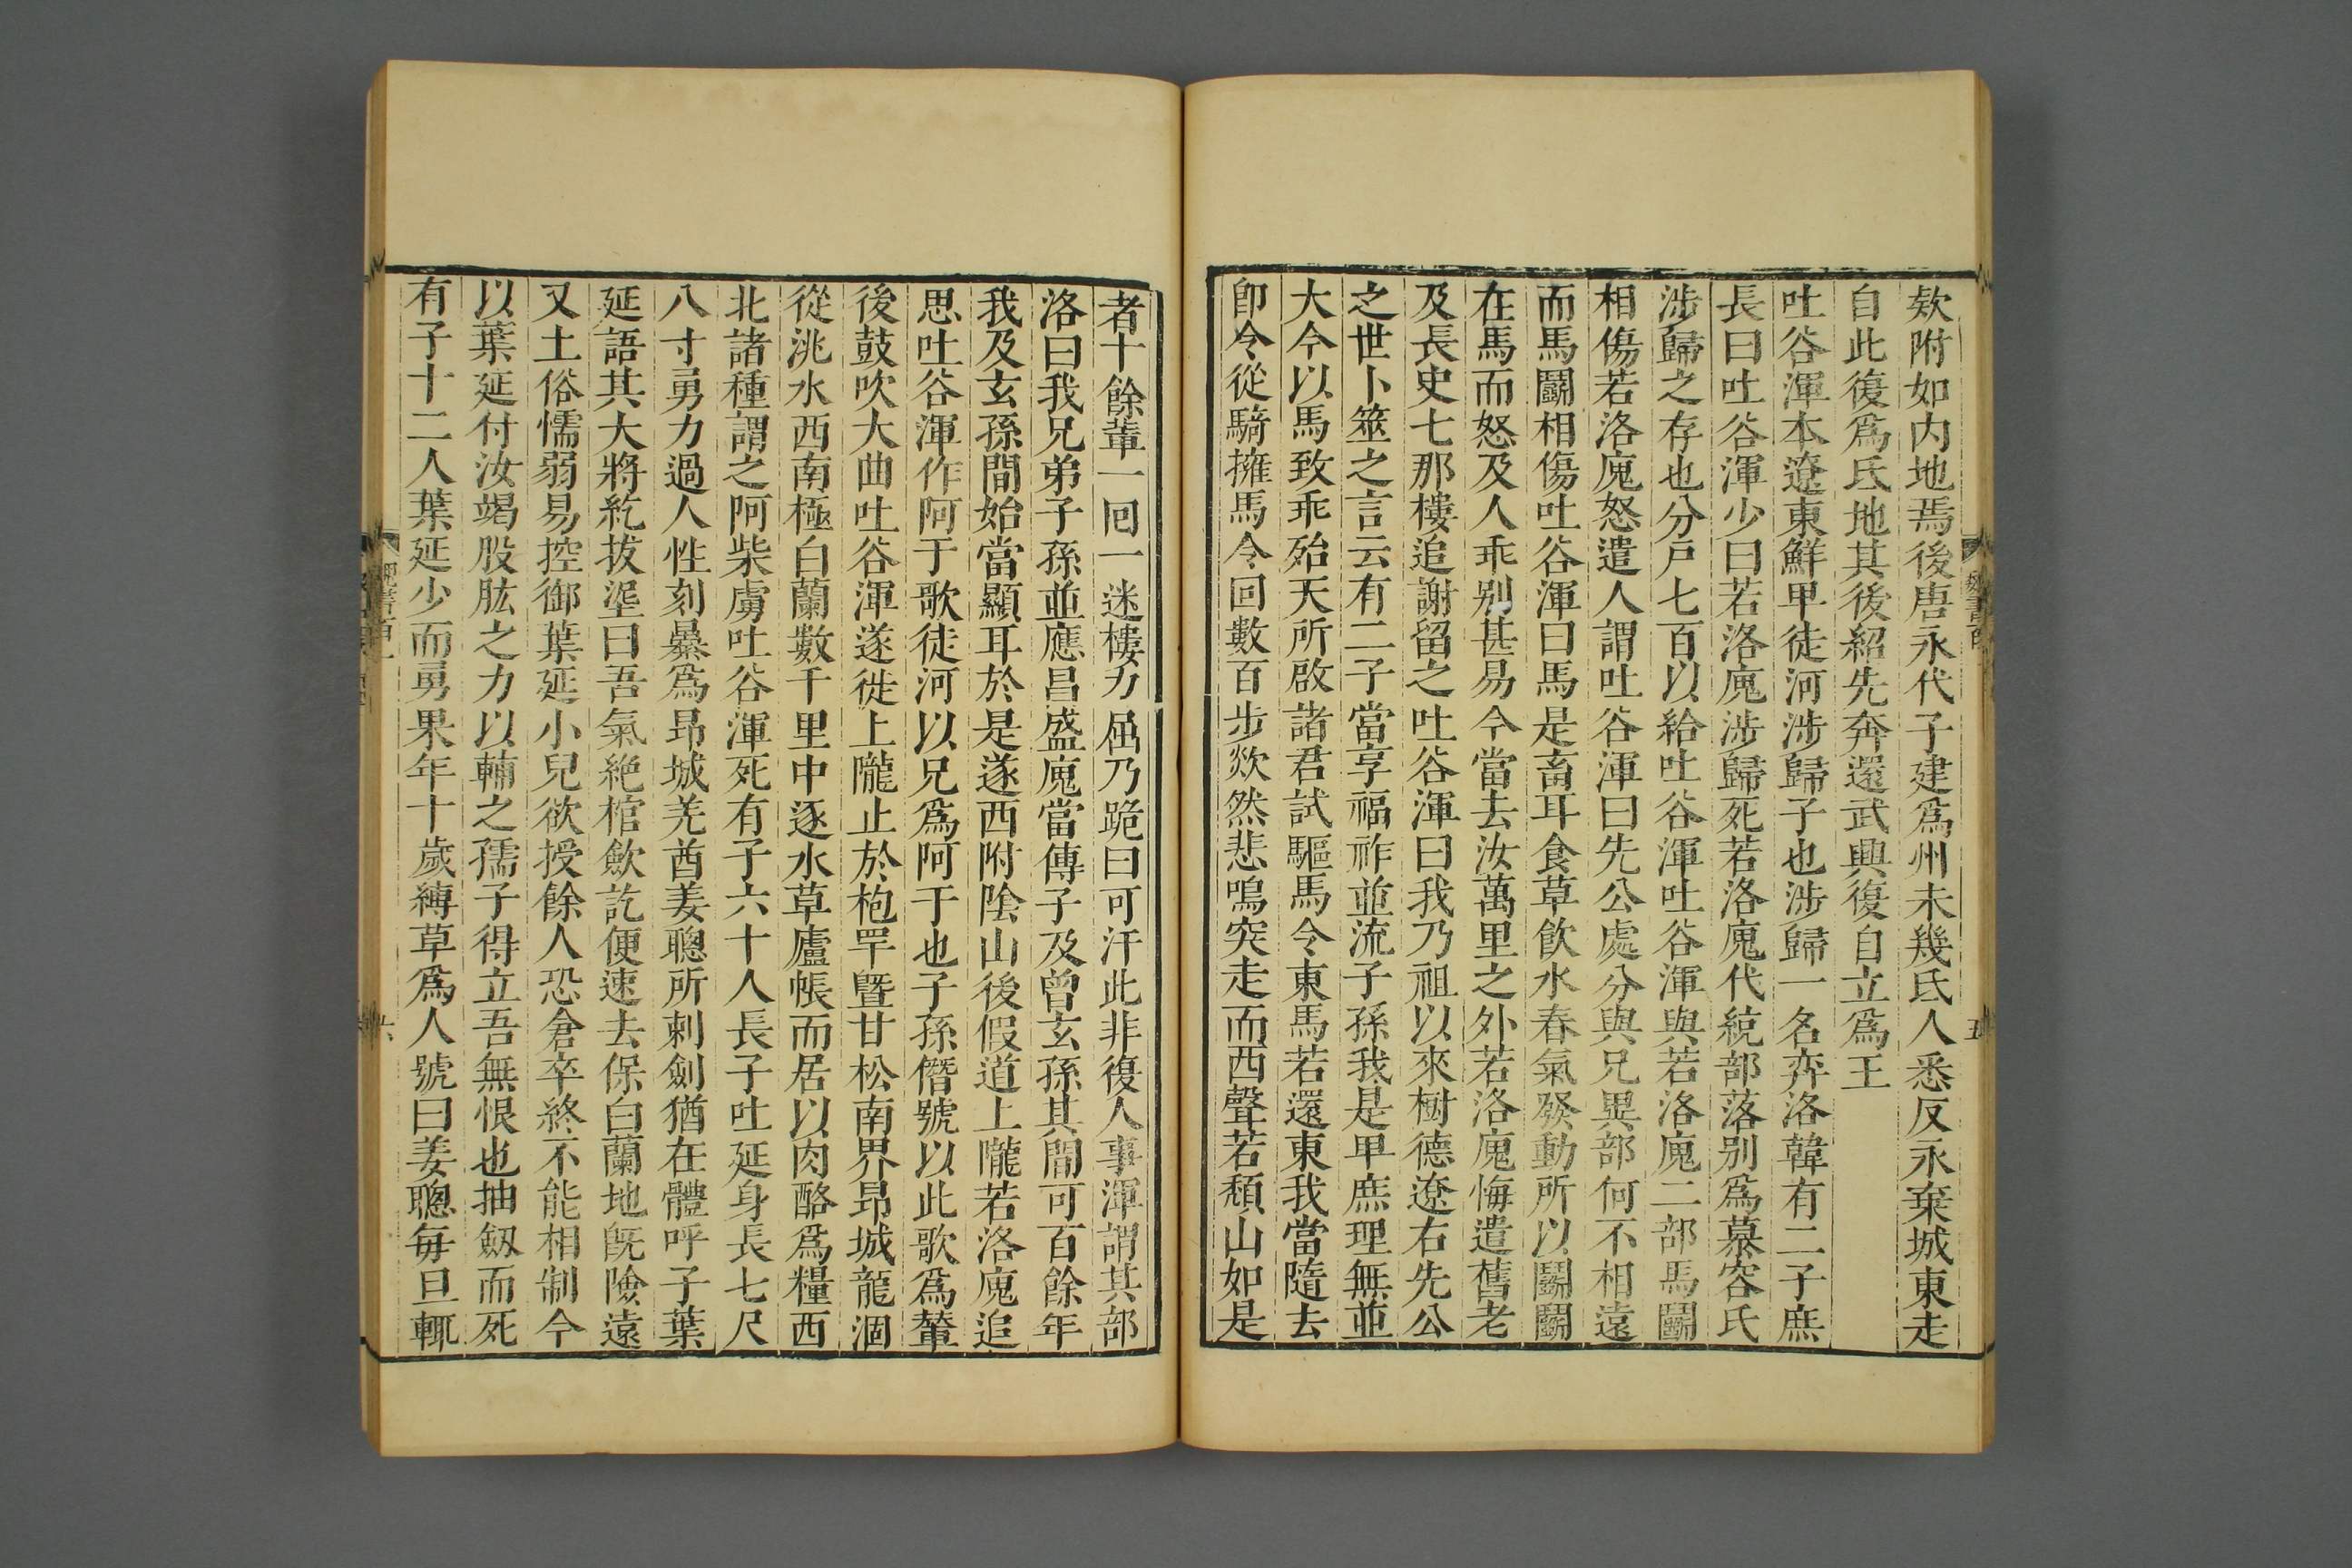 欵附如内地焉後唐永代子建爲州未幾氐人悉反永棄城東走
自此復爲氐地其後紹先奔還武興復自立爲王
吐谷渾本遼東鮮卑徒河涉歸子也涉歸一名弈洛韓有二子庶
長曰吐谷渾少曰若洛廆涉歸死若洛廆代統部落别爲慕容氏
涉歸之存也分戸七百以給吐谷渾吐谷渾與若洛廆二部馬鬬
相傷若洛廆怒遣人謂吐谷渾曰先公處分與兄異部何不相遠
而馬鬬相傷吐谷渾曰馬是畜耳食草飲水春氣發動所以鬬鬬
在馬而怒及人乖别甚易今當去汝萬里之外若洛廆悔遣舊老
及長史七那樓追謝留之吐谷渾曰我乃祖以來樹德遼右先公
之世卜筮之言云有二子當享福祚並流子孫我是卑庶理無並
大今以馬致乖殆天所啟諸君試驅馬令東馬若還東我當隨去
卽令從騎擁馬令回數百步欻然悲鳴突走而西聲若頽山如是
者十餘輩一回一迷樓力屈乃跪曰可汗此非復人事渾謂其部
洛曰我兄弟子孫並應昌盛廆當傳子及曾玄孫其間可百餘年
我及玄孫間始當顯耳於是遂西附陰山後假道上隴若洛廆追
思吐谷渾作阿于歌徒河以兄爲阿于也子孫僭號以此歌爲輦
後鼓吹大曲吐谷渾遂徙上隴止於枹罕曁甘松南界昂城龍涸
從洮水西南極白蘭數千里中逐水草廬帳而居以肉酪爲糧西
北諸種謂之阿柴虜吐谷渾死有子六十人長子吐延身長七尺
八寸勇力過人性刻暴爲昂城羌酋姜聰所刺劍猶在體呼子葉
延語其大將紇拔埿曰吾氣絶棺歛訖便速去保白蘭地旣險遠
又土俗懦弱易控御葉延小兒欲授餘人恐倉卒終不能相制今
以葉延付汝竭股肱之力以輔之孺子得立吾無恨也抽劔而死
有子十二人葉延少而勇果年十歲縛草爲人號曰姜聰每旦輒
五
六